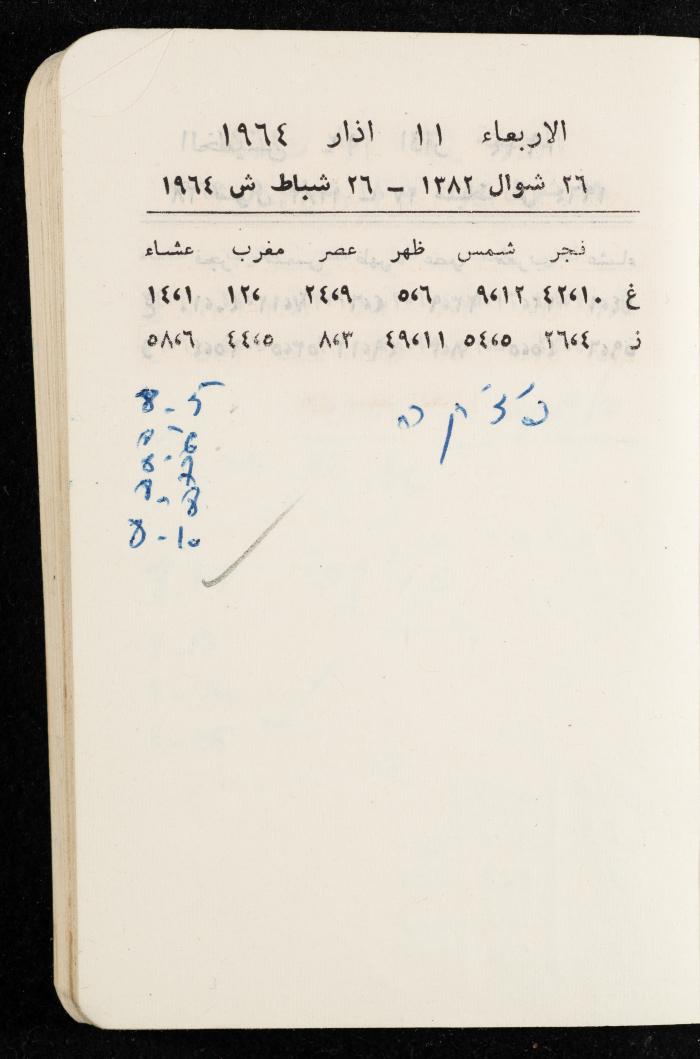 الاربعاء ١١ اذار ١٩٦٤
٢٦ شوال ١٣٨٢ – ٢٦ شباط ش ١٩٦٤
فجر شمس ظهر عصر مغرب عشاء
غ ٤٢،١٠ ٩،١٢ ٥،٦ ٢٤،٩ ١٢، ١٤،١
ز ٢٦،٤ ٥٤،٥ ٤٩،١١ ٨،٣ ٤٤،٥ ٥٨،٦
8 - 5
8 - 6
8 - 7
8 - 8
8 - 10